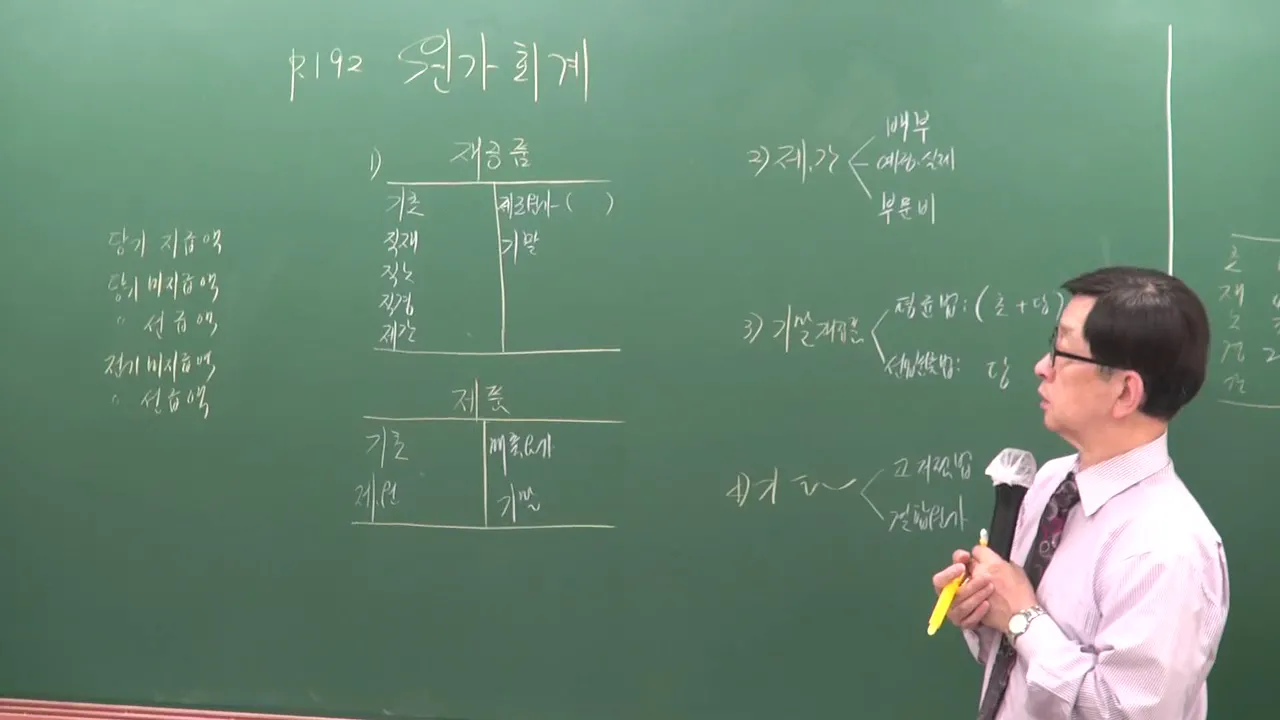 P.192 원가회계
당기 지급액
당기 미지급액
" 선급액
전기 미지급액
" 선급액
1) 재공품
기초 제조원가 ( )
직재 기말
직노
직경
제간
제품
기초 매출원가
제.원 기말
2) 제.간
배부
예정·실제
부문비
3) 기말재공품
평균법 : ( 초 + 당 )
선입선출법 : 당
4) 기타
고저점법
결합원가
초
재
노
경 2